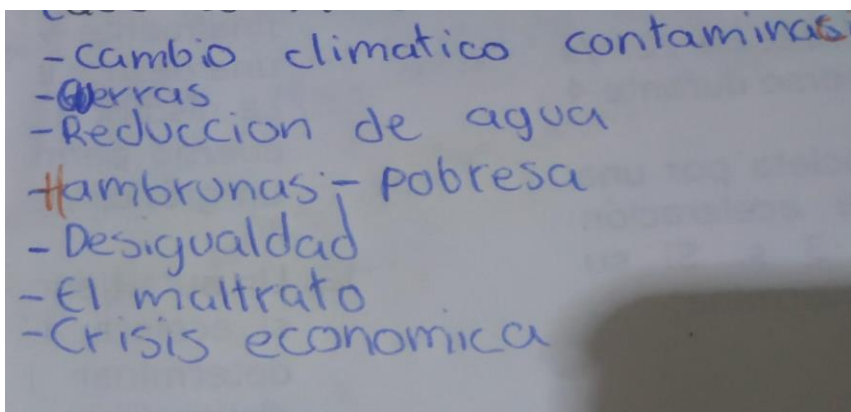 -cambio climatico contaminac
-Guerras
-Reduccion de agua
Hambrunas - pobresa
- Desigualdad
- El maltrato
-Crisis economica